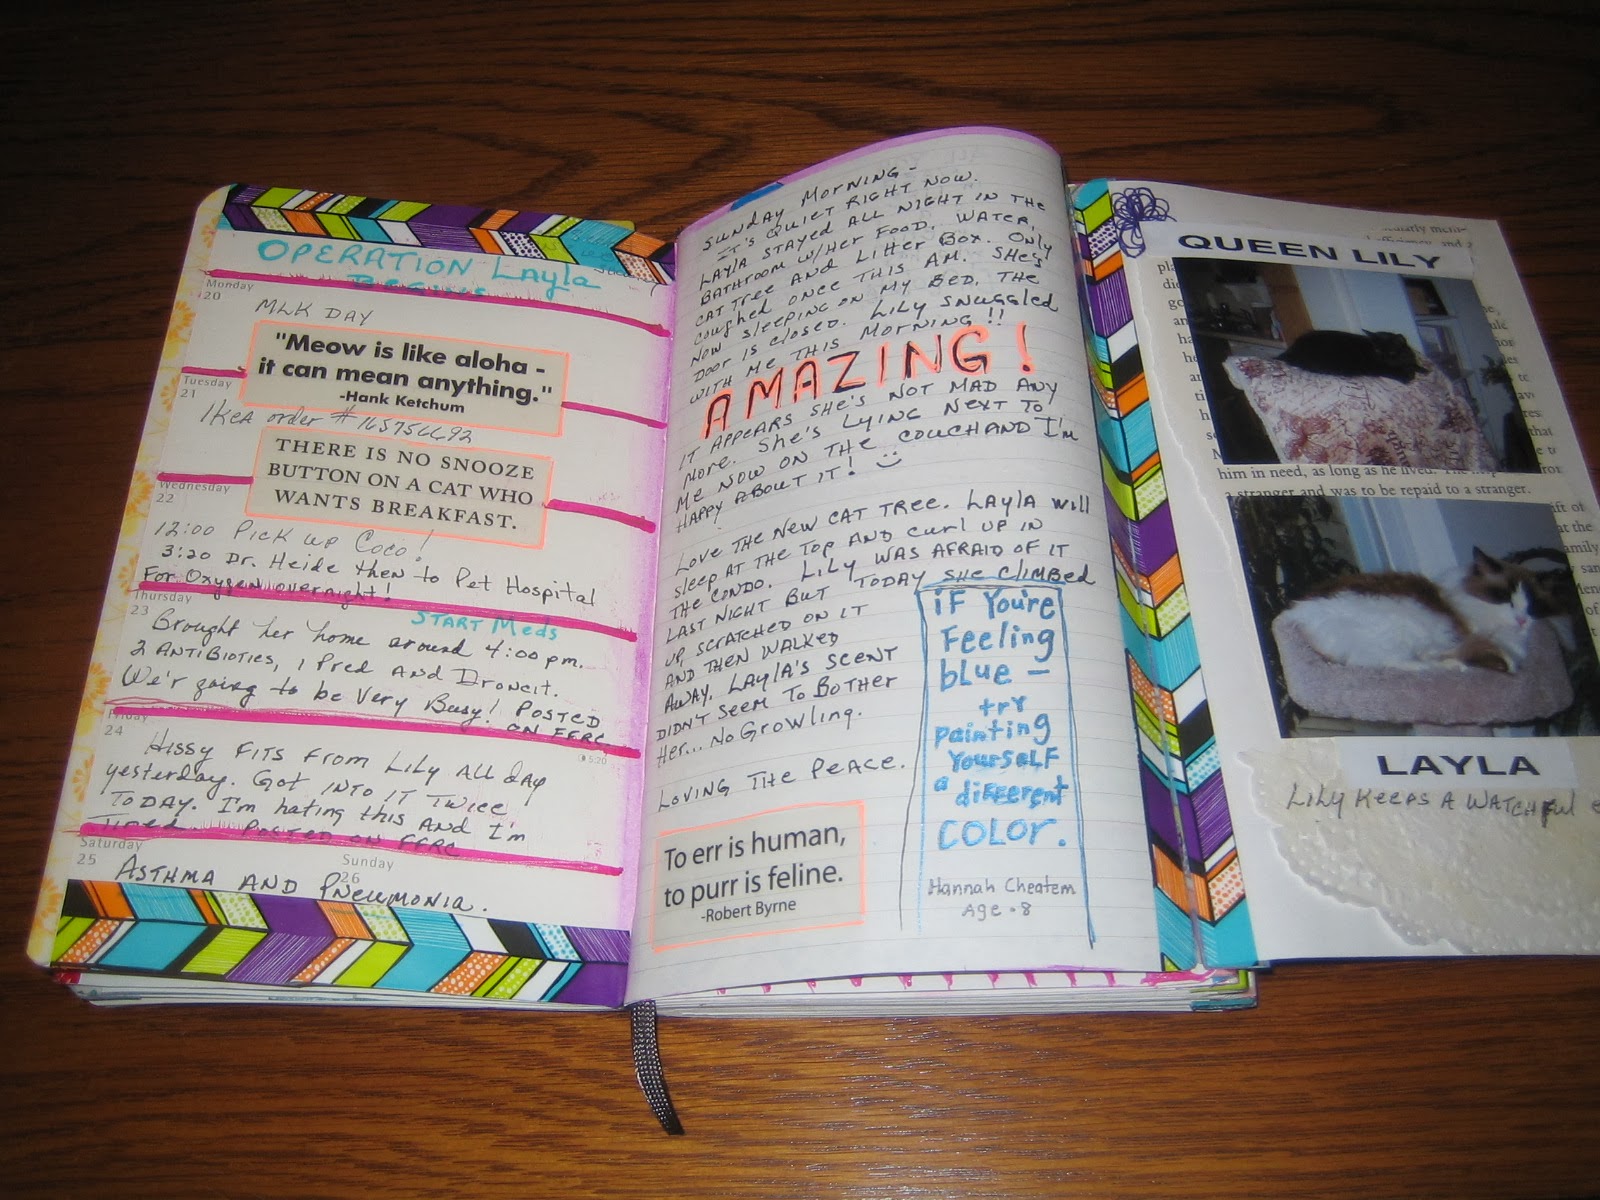 OPERATION Layla
Begins
Monday
20
MLK DAY
"Meow is like aloha -
it can mean anything."
-Hank Ketchum
Tuesday
21
IKea order # 165756692
THERE IS NO SNOOZE
BUTTON ON A CAT WHO
WANTS BREAKFAST.
Wednesday
22
12:00 Pick up Coco!
3:20 Dr. Heide then to Pet Hospital
For Oxygen overnight!
Thursday
23
START Meds
Brought her home around 4:00 pm.
2 ANTIBIOTICS, 1 Pred AND Droncit.
We'r going to be Very Busy! POSTED
ON FFRC
Friday
24
5:20
Hissy FITS FROM LILY ALL day
yesterday. Got INTO IT TWICE
TODAY. I'm hating this AND I'm
Tired. POSTED ON FFRC
Saturday
25
Sunday
26
ASTHMA AND PNEUMONIA.
SUNDAY MORNING -
IT'S QUIET RIGHT NOW.
LAYLA STAYED ALL NIGHT IN THE
BATHROOM W/HER FOOD, WATER,
CAT TREE AND LITTER BOX. ONLY
COUGHED ONCE THIS AM. SHE'S
NOW SLEEPING ON MY BED. THE
DOOR IS CLOSED. LILY SNUGGLED
WITH ME THIS MORNING!!
AMAZING!
IT APPEARS SHE'S NOT MAD ANY
MORE. SHE'S LYING NEXT TO
ME NOW ON THE COUCH AND I'M
HAPPY ABOUT IT!
LOVE THE NEW CAT TREE. LAYLA WILL
SLEEP AT THE TOP AND CURL UP IN
THE CONDO. LILY WAS AFRAID OF IT
LAST NIGHT BUT TODAY SHE CLIMBED
UP, SCRATCHED ON IT
AND THEN WALKED
AWAY. LAYLA'S SCENT
DIDN'T SEEM TO BOTHER
HER... NO GROWLING.
LOVING THE PEACE.
To err is human,
to purr is feline.
-Robert Byrne
iF You're
Feeling
blue –
try
painting
YourSELF
a different
COLOR.
Hannah Cheatem
Age - 8
QUEEN LILY
him in need, as long as he lived. The
a stranger and was to be repaid to a stranger.
LAYLA
LILY KEEPS A WATCHFUL